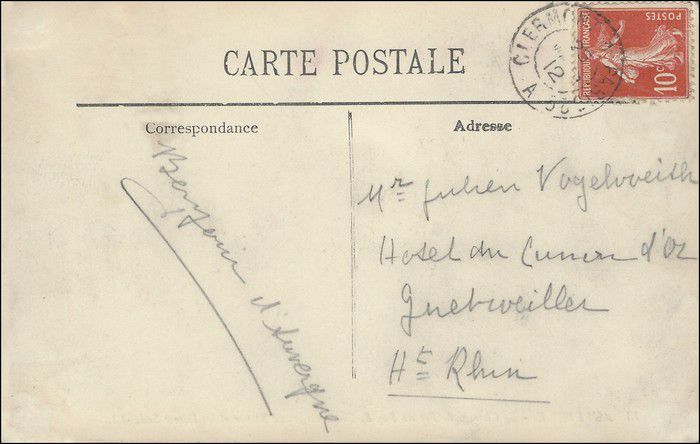 CARTE POSTALE
POSTES
REPUBLIQUE FRANÇAISE
10c
CLERMONT
Correspondance
Adresse
Bonjour d'Auvergne
Mr Julien Vogelweith
Hotel du d'Or
Guebweiller
Ht Rhin